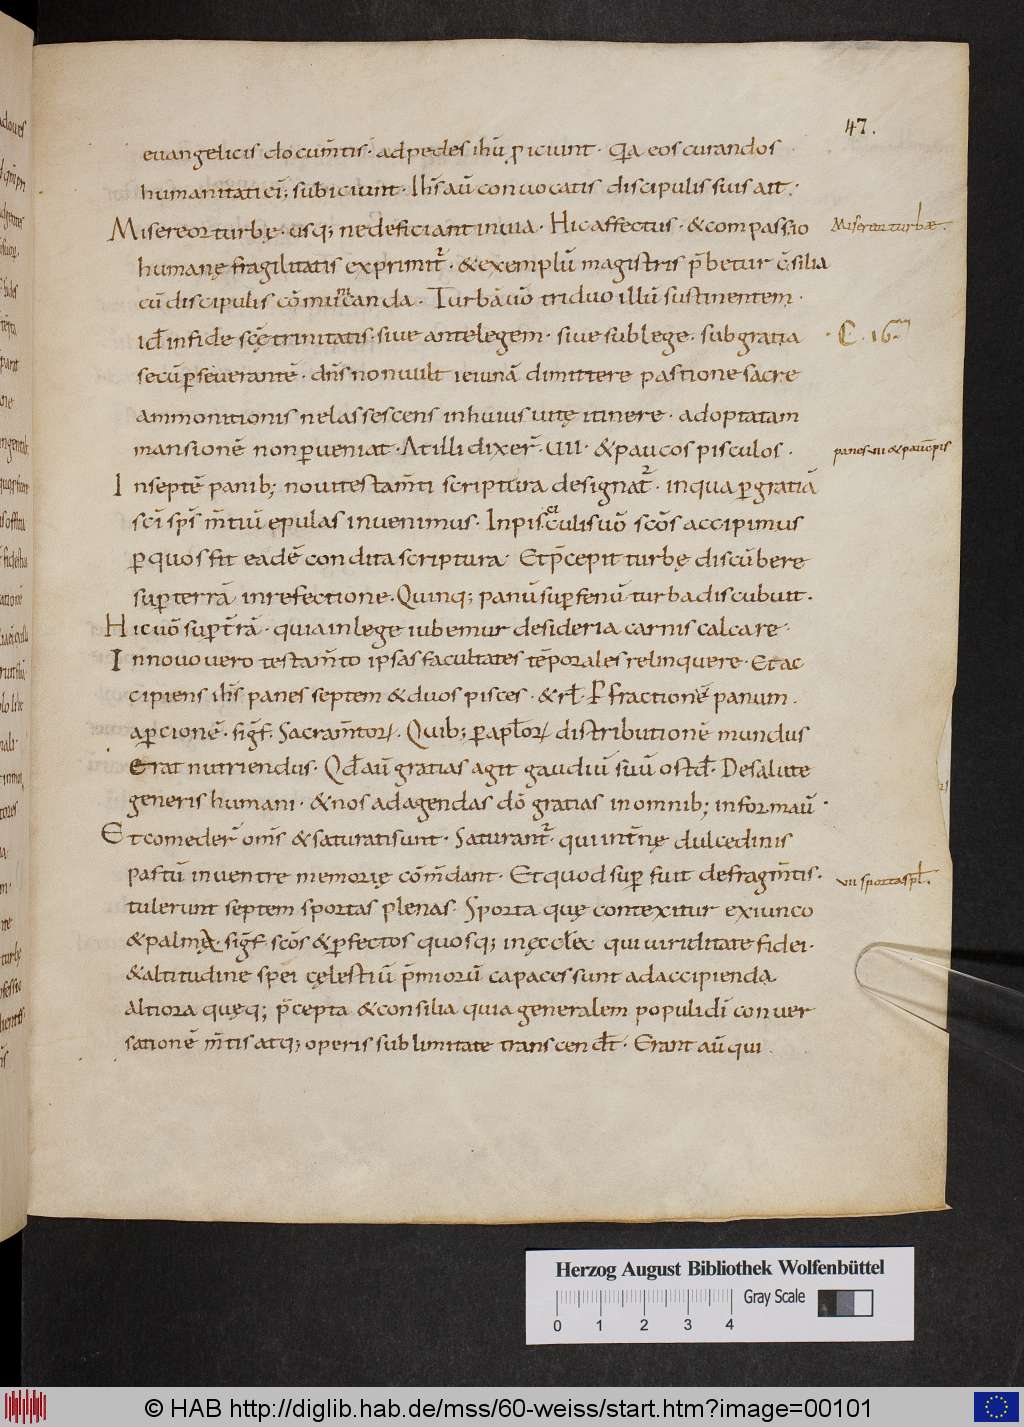 47.
euangelicis docum̄tis · ad pedes ihū ꝓiciunt · Qa eos curandos
humanitati ei; subiciunt · Ihs aū conuocatis discipulis suis ait ·
Misereor turbę · usq; ne deficiant in uia · Hic affectus · & compassio
Misereor turbæ.
humanę fragilitatis exprimit᷑ · & exemplū magistris p̄betur c̄silia
cū discipulis cōmunicanda · Turba uō triduo illū sustinentem ·
id̄ in fide scę̄ trinitatis · siue ante legem · siue sub lege · sub gratia
C. 16
secū ꝑseuerantē · dn̄s non uult ieiunā dimittere pastione sacre
ammonitionis ne lassescens in huius uitę itinere · ad optatam
mansionē non ꝑueniat · At illi dixer̄ · UII · & paucos pisculos ·
panes uii & pauc̄ pis
In septē panib; noui testam̄ti scriptura designat᷑ · in qua ꝑ gratiā
sci sp̄s m̄tiū epulas inuenimus · In pisciculis uō scōs accipimus
ꝑ quos fit eadē condita scriptura · Et p̄cepit turbę discūbere
suꝑ terrā in refectione · Quinq; panū suꝑ fenū turba discubuit ·
Hic uō suꝑ t̄rā · quia in lege iubemur desideria carnis calcare ·
In nouo uero testam̄to ipsas facultates tēporales relinquere · Et ac
cipiens ihs panes septem & duos pisces · & rł · P fractionē panum ·
aꝑcionē · sigf̄ · Sacram̄toꝝ · Quib; ꝑ apłoꝝ distributionē mundus
erat nutriendus · Qd̄ aū gratias agit gaudiū suū ostd̄ · De salute
generis humani · & nos ad agendas dō gratias in omnib; informau᷑ ·
Et comeder̄ om̄s & saturati sunt · Saturant᷑ · qui int̄nę dulcedinis
pastū in uentre memorię cōm̄dant · Et quod suꝑ fuit de fragm̄tis ·
uii sportas pł.
tulerunt septem sportas plenas · Sporta quę contexitur ex iunco
& palmę · sigf̄ scōs & ꝑfectos quosq; in ęccłę qui uiriditate fidei ·
& altitudine spei cęlestiū p̄miorū capaces sunt ad accipienda
altiora quęq; p̄cepta & consilia quia generalem populi dī conuer
sationē m̄tis atq; operis sublimitate transcend̄t · Erant aū qui
Herzog August Bibliothek Wolfenbüttel
Gray Scale
0 1 2 3 4
© HAB http://diglib.hab.de/mss/60-weiss/start.htm?image=00101